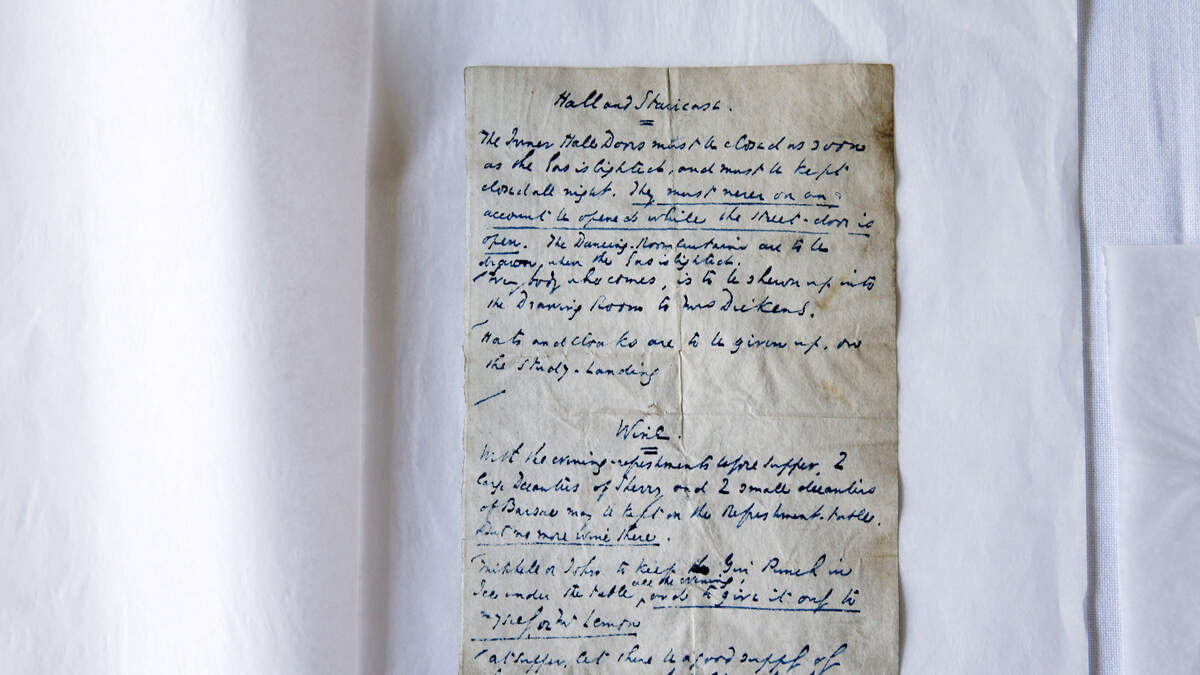 Hall and Staircase.
The Inner Hall Doors must be closed as soon
as the Gas is lighted, and must be kept
closed all night. They must never on any
account be opened while the street-door is
open. The Dancing-Room Curtains are to be
drawn, when the Gas is lighted.
Every body who comes, is to be shewn up into
the Drawing Room to Mrs Dickens.
Hats and cloaks are to be given up, on
the Study-Landing
Wine.
With the evening-refreshments before supper, 2
large Decanters of Sherry and 2 small decanters
of Barsac may be kept on the Refreshment-table.
But no more wine there.
Mitchell or John to keep the Gin Punch in
Ice under the table, all the evening, and to give it only to
myself or Mr Lemon
At supper, let there be a good supply of